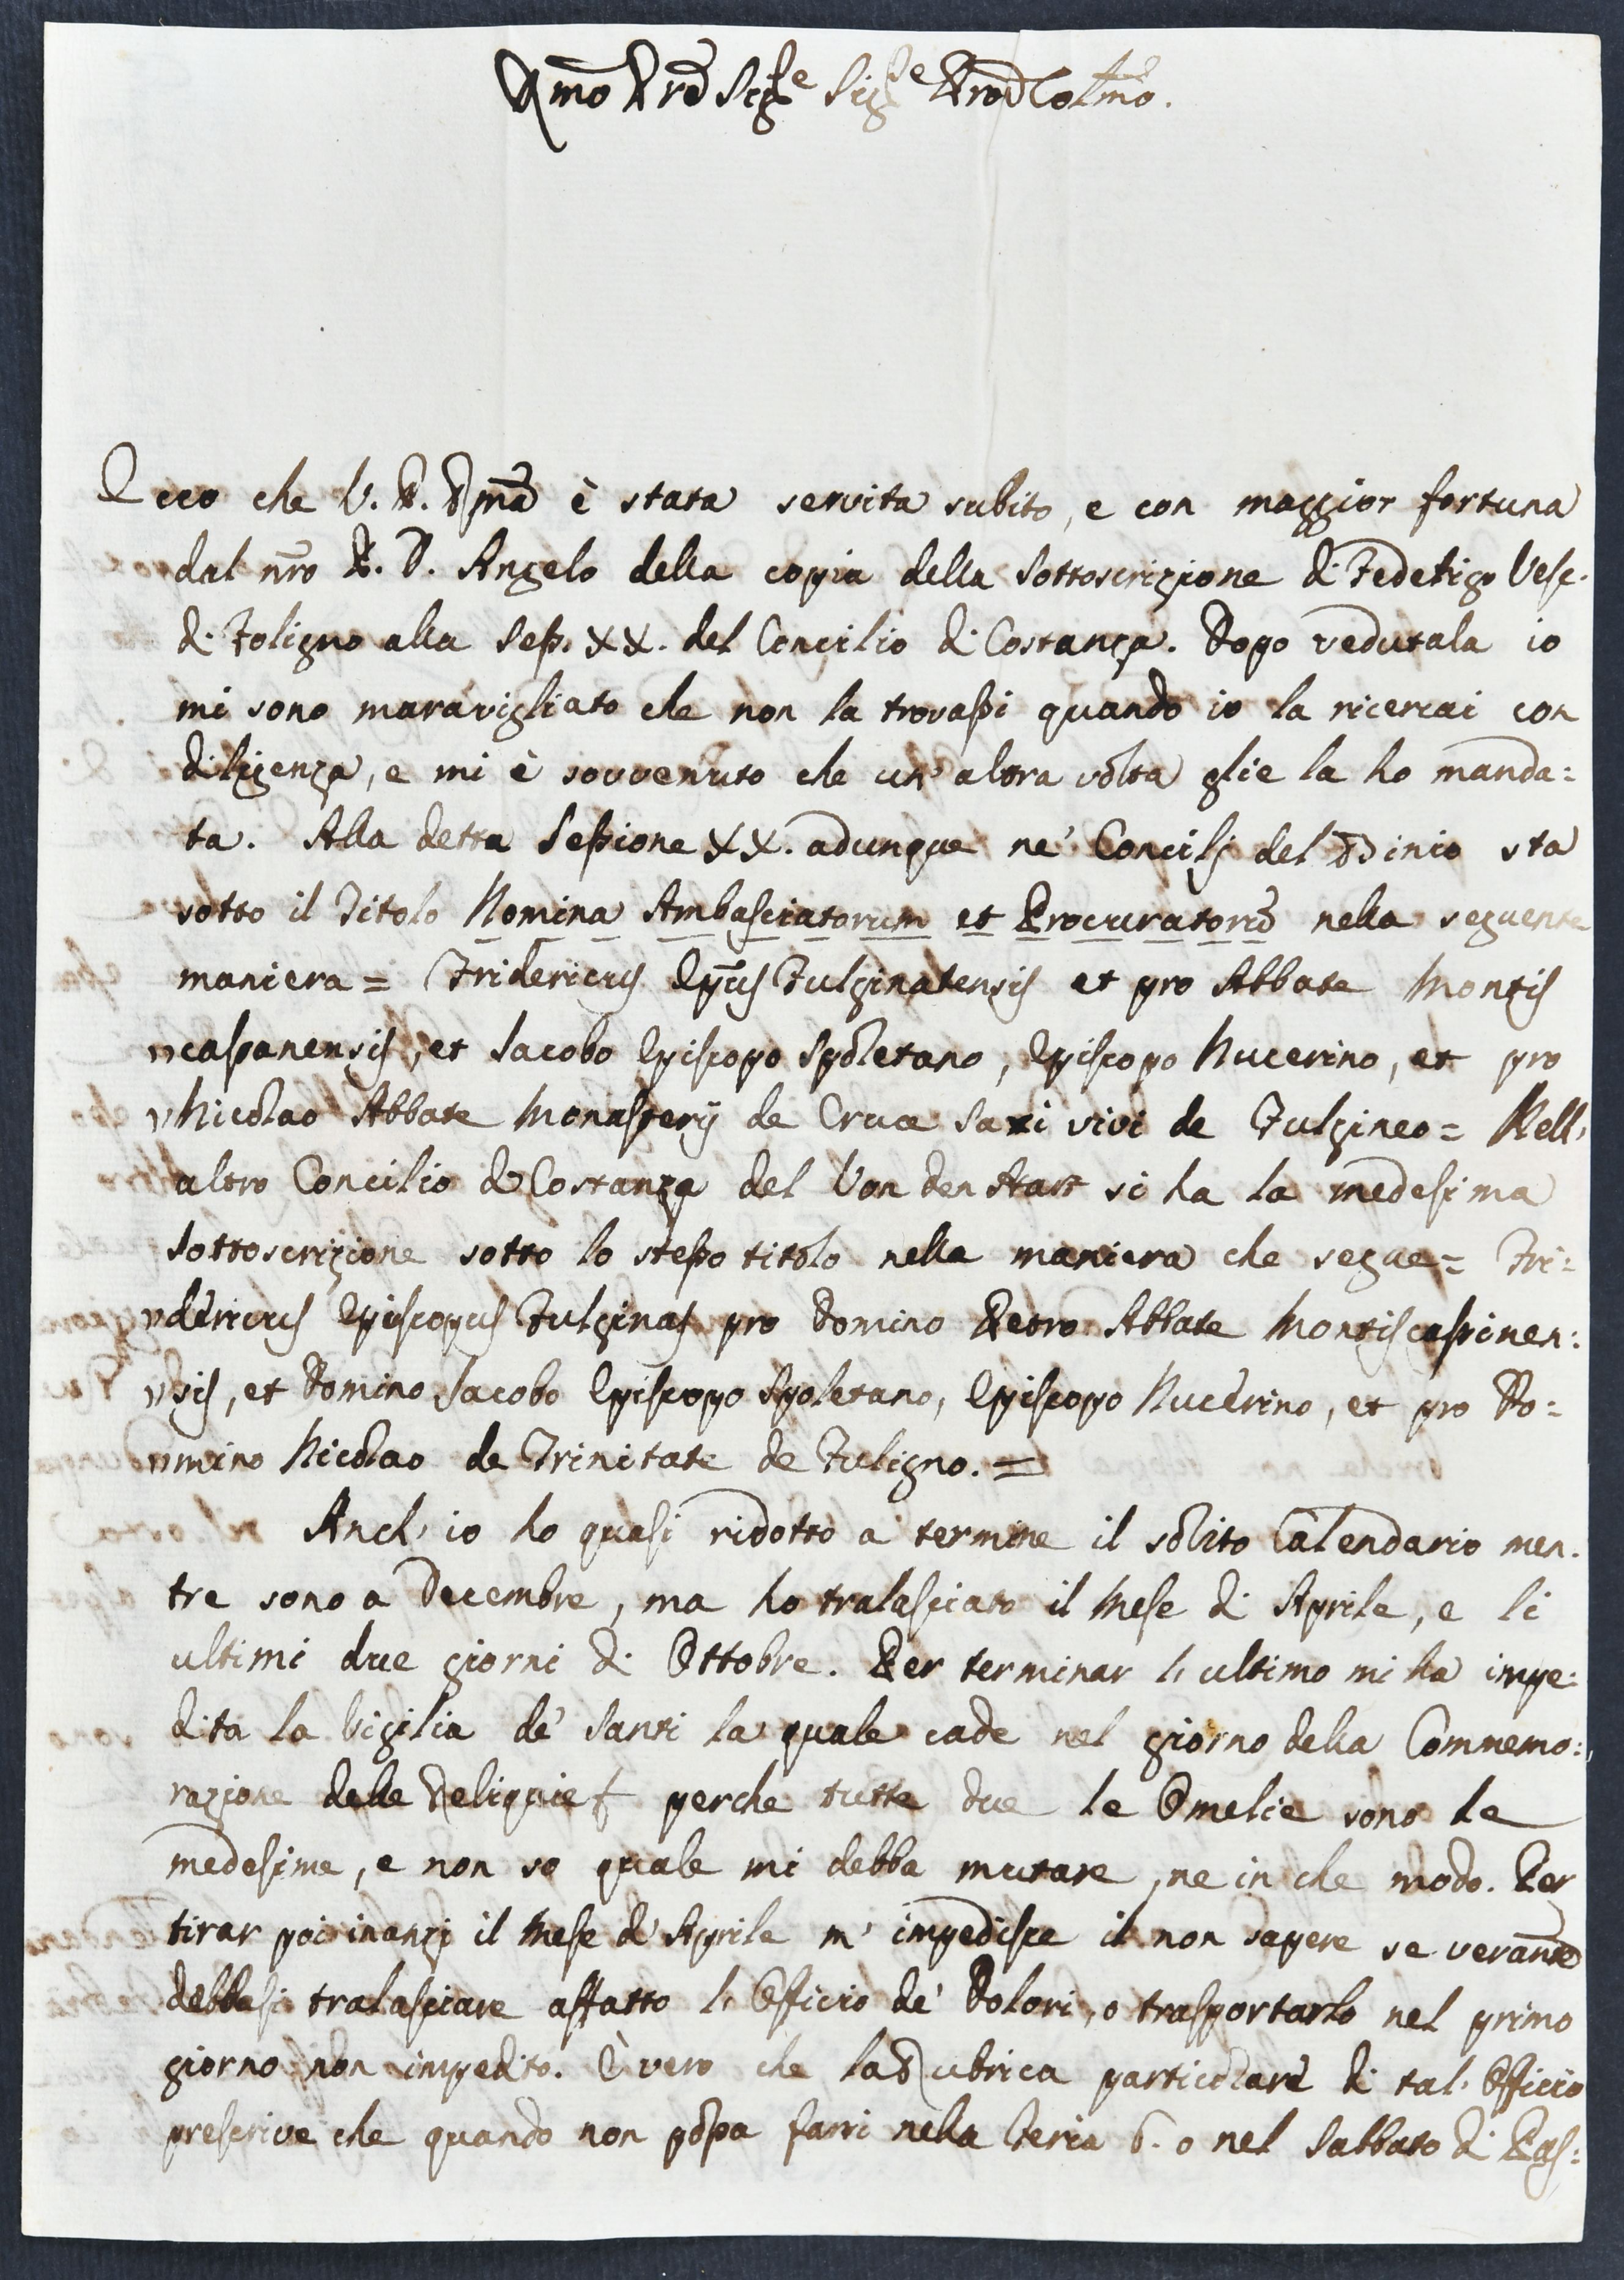 Rmo Prē Sigre Sigre Prōe Colmo.
Ecco che V. P. Rma è stata servita subito, e con maggior fortuna
dal nro P. D. Angelo della copia della sottoscrizione di Federigo Vesc.
di Foligno alla Sess. XX. del Concilio di Costanza. Dopo vedutala io
mi sono maravigliato che non la trovassi quando io la ricercai con
diligenza, e mi è sovvenuto che un' altra volta glie la ho manda=
ta. Alla detta Sessione XX. adunque ne' Concilj del sta
sotto il Titolo Nomina Ambasciatorum et Procuratorū nella seguente
maniera = Fridericus Epūs Fulginatensis et pro Abbate Montis
„cassanensis, et Jacobo Episcopo Spoletano, Episcopo Nucerino, et pro
„Nicolao Abbate Monasterij de Cruce Saxi vivi de Fulgineo = Nell'
altro Concilio di Costanza del Von den Hart si ha la medesima
sottoscrizione sotto lo stesso titolo nella maniera che segue = Fri=
„dericus Episcopus Fulginas pro Domino Petro Abbate Montiscassinen=
„sis, et Domino Jacobo Episcopo Spoletano, Episcopo Nucerino, et pro Do=
„mino Nicolao de Trinitate de Fuligno. =
Anch' io ho quasi ridotto a termine il solito Calendario men.
tre sono a Decembre, ma ho tralasciato il Mese di Aprile, e li
ultimi due giorni di Ottobre. Per terminar l' ultimo mi ha impe=
dita la Vigilia de' Santi la quale cade nel giorno della Commemo=
razione delle Reliquie perche tutte due le Omelie sono le
medesime, e non so quale mi debba mutare, ne in che modo. Per
tirar poi inanzi il Mese d' Aprile m' impedisce il non sapere se veramte
debbasi tralasciare affatto l' Officio de' Dolori, o trasportarlo nel primo
giorno non impedito. È vero che la Rubrica particolare di tal' Officio
prescrive che quando non possa farsi nella Feria 6. o nel Sabbato di Pas=